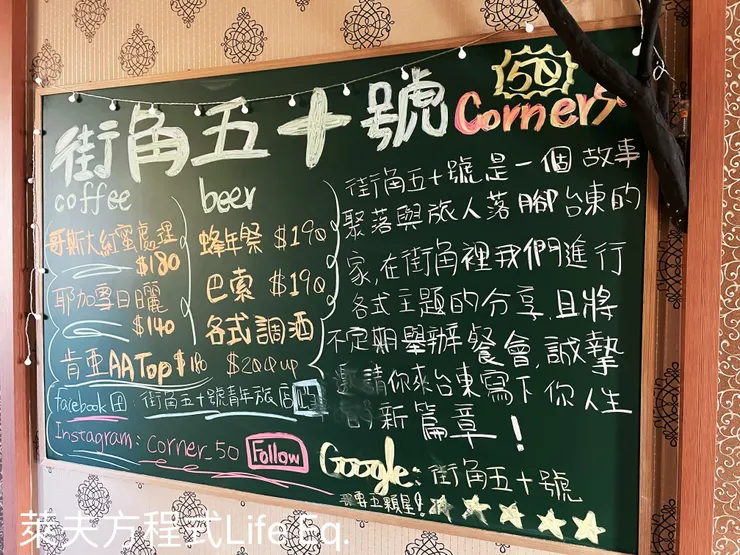 街角五十號 50 Corner5
coffee
哥斯大紅蜜處理
$180
耶加雪日曬
$140
肯亞AA Top $180
beer
蜂年祭 $190
巴索 $190
各式調酒
$200up
街角五十號是一個故事
聚落與旅人落腳台東的
家,在街角裡我們進行
各式主題的分享,且將
不定期舉辦餐會,誠摯
邀請你來台東寫下你人生
的新篇章!
facebook 街角五十號青年旅店
Instagram: Corner_50 Follow
Google: 街角五十號
要五顆星!
萊夫方程式Life Eq.